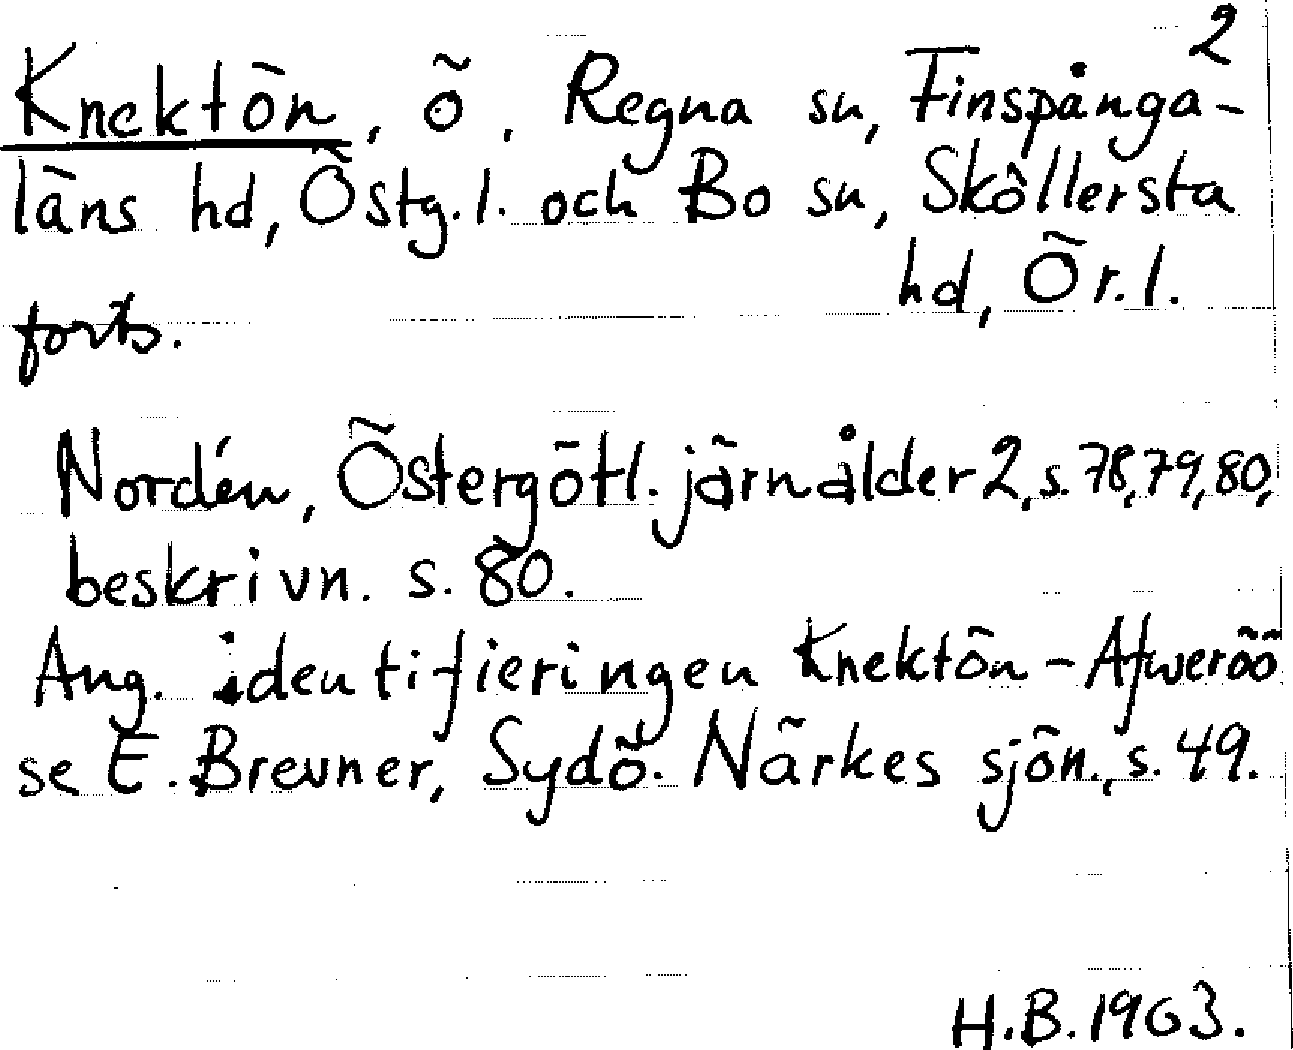 2
Knektön, ö, Regna sn, Finspånga-
läns hd, Östg.l. och Bo sn, Sköllersta
hd, Ör.l.
forts.
Nordén, Östergötl. järnålder 2, s. 78, 79, 80,
beskrivn. s. 80.
Ang. identifieringen Knektön - Afweröö
se E. Brevner, Sydö. Närkes sjön., s. 49.
H.B. 1963.